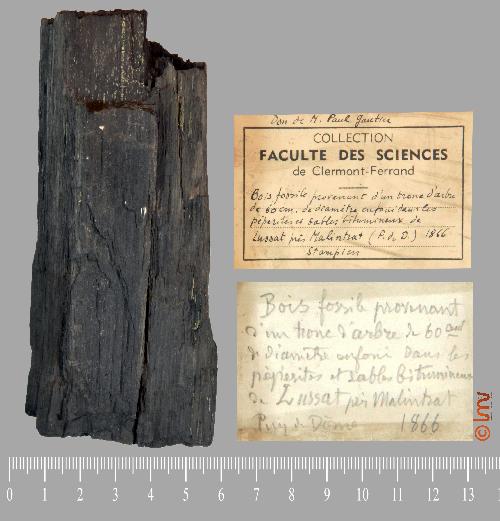 Don de M. Paul Gautier
COLLECTION
FACULTE DES SCIENCES
de Clermont-Ferrand
Bois fossile provenant d'un tronc d'arbre
de 60 cm. de diamètre enfoui dans les
pépérites et sables bitumineux de
Lussat près Malintrat (P. de D.) 1866
Stampien
Bois fossile provenant
d'un tronc d'arbre de 60 cent
de diamètre enfoui dans les
pépérites et sables bitumineux
de Lussat près Malintrat
Puy de Dôme 1866
© lmv
0 1 2 3 4 5 6 7 8 9 10 11 12 13